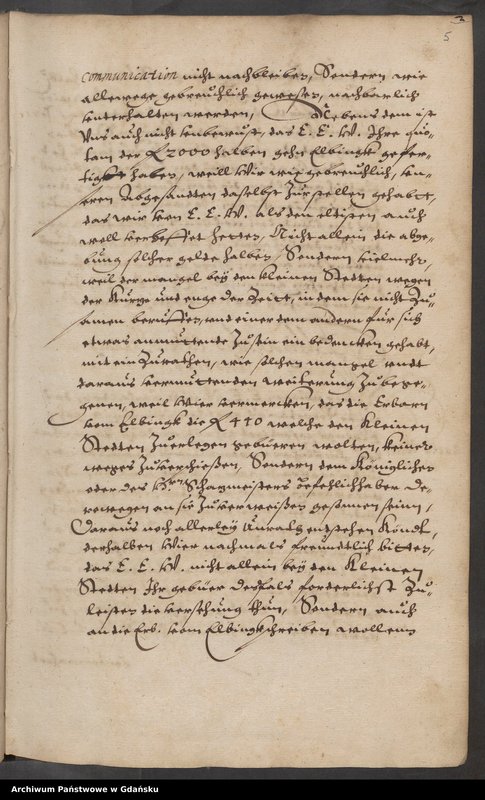 3
5
communication nicht nachbleiben, Sondern wie
allewege gebreuchlich gewesen, nachbarlich
unterhalten werden, Nebens dem ist
Uns auch nicht unbewust, das E. E. W. Ihre quo-
tam der R 2000 halben gehn Elbingk gefer-
tigt haben, weill Wir wie gebreuchlich, un-
seren Abgesandten daselbst zur stellen gehabt,
das wir von E. E. W. als den eltisten auch
woll verhoffet hetten, Nicht allein die abge-
bung solcher gelde halben, Sondern vielmehr,
weil der mangel bey den kleinen Stedten wegen
der Kürtze und enge der Zeitt, in dem sie nicht Zu-
samen beruffen, und einer dem andern für sich
etwas anmuttende Zu sein ein bedencken gehabt,
mit ein Zurathen, wie solchen mangel undt
daraus vermuttenden weiterung Zubege-
genen, weil Wier vermercken, das die Erbarn
vom Elbingk die R 440 welche den Kleinen
Stedten Zuerlegen gebueren wolten, keines
weges Zuverschießen, Sondern dem Königlichen
oder des Hrn Schatzmeisters Befehlichhaber De-
rowegen an sie Zuverweißen gesonnen seinn,
Daraus noch allerley Unrath entstehen Köndt,
derhalben Wier nachmals freundtlich bitten,
das E. E. W. nicht allein bey den Kleinen
Stedten Ihr gebüer desfals forderlichst Zu-
leisten die versehung thun, Sondern auch
an die Erb. vom Elbingk schreiben wollenn
Archiwum Państwowe w Gdańsku